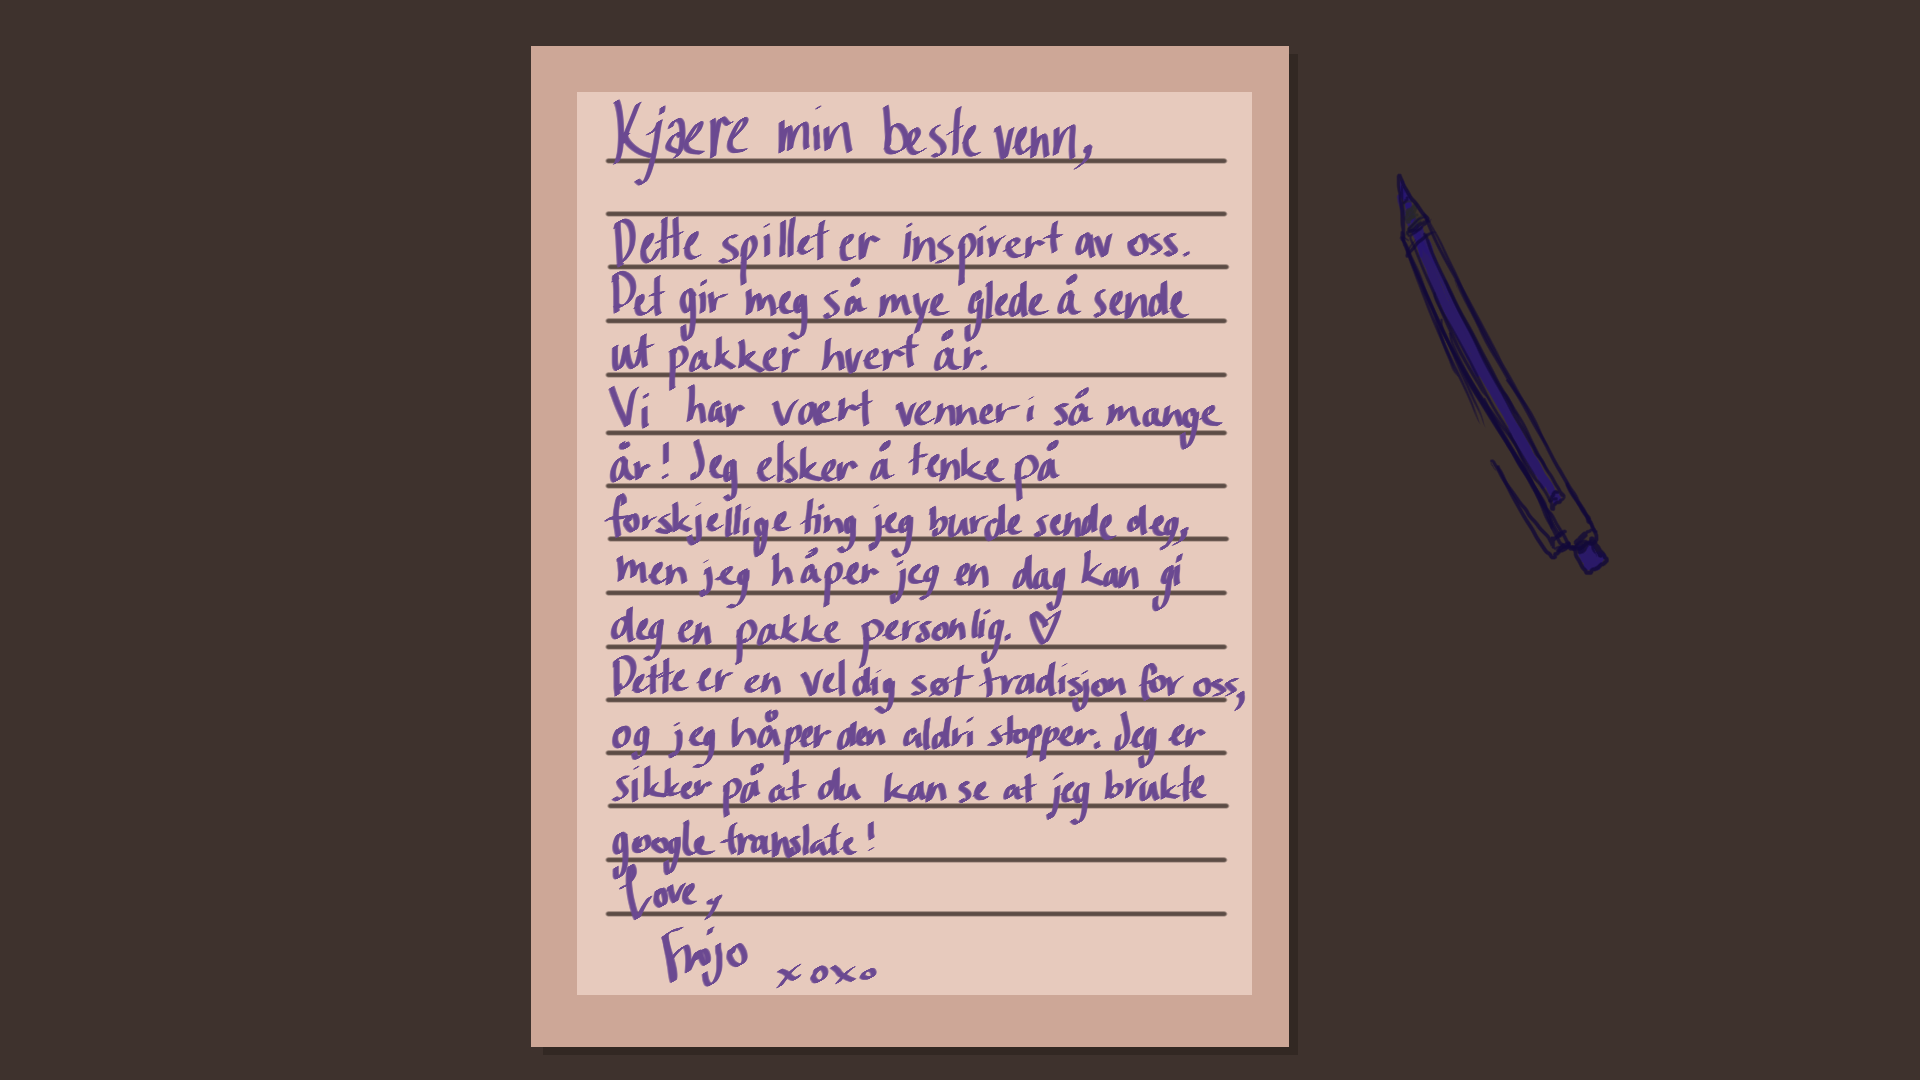 Kjære min beste venn,
Dette spillet er inspirert av oss.
Det gir meg så mye glede å sende
ut pakker hvert år.
Vi har vært venner i så mange
år! Jeg elsker å tenke på
forskjellige ting jeg burde sende deg,
men jeg håper jeg en dag kan gi
deg en pakke personlig. ♡
Dette er en veldig søt tradisjon for oss,
og jeg håper den aldri stopper. Jeg er
sikker på at du kan se at jeg brukte
google translate!
Love,
Frojo xoxo